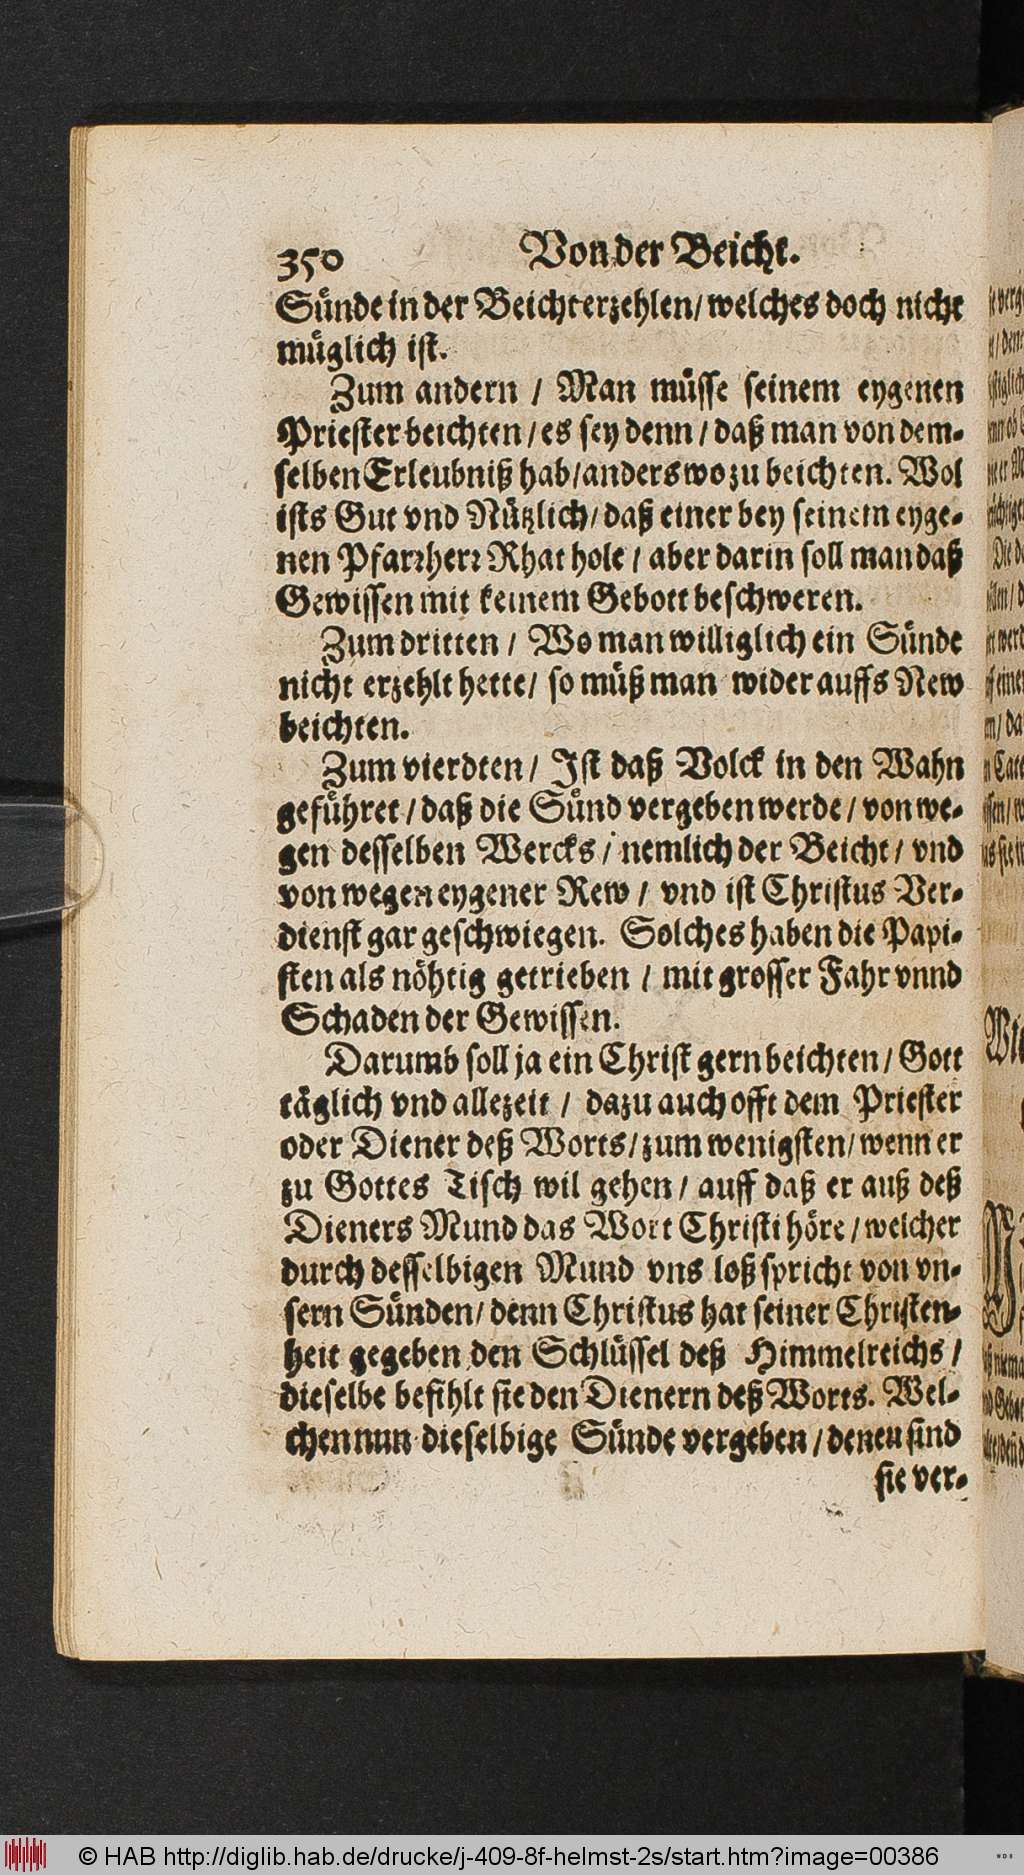 350 Von der Beicht.
Sünde in der Beicht erzehlen/ welches doch nicht
müglich ist.
Zum andern / Man müsse seinem eygenen
Priester beichten / es sey denn / daß man von dem-
selben Erleubniß hab/ anderswo zu beichten. Wol
ists Gut vnd Nützlich/ daß einer bey seinem eyge-
nen Pfarrherr Rhat hole / aber darin soll man daß
Gewissen mit keinem Gebott beschweren.
Zum dritten / Wo man williglich ein Sünde
nicht erzehlt hette/ so müß man wider auffs New
beichten.
Zum vierdten / Ist daß Volck in den Wahn
geführet / daß die Sünd vergeben werde / von we-
gen desselben Wercks / nemlich der Beicht / vnd
von wegen eygener Rew / vnd ist Christus Ver-
dienst gar geschwiegen. Solches haben die Papi-
sten als nöhtig getrieben / mit grosser Fahr vnnd
Schaden der Gewissen.
Darumb soll ja ein Christ gern beichten / Gott
täglich vnd allezeit / dazu auch offt dem Priester
oder Diener deß Worts / zum wenigsten / wenn er
zu Gottes Tisch wil gehen / auff daß er auß deß
Dieners Mund das Wort Christi höre / welcher
durch desselbigen Mund vns loß spricht von vn-
sern Sünden / denn Christus hat seiner Christen-
heit gegeben den Schlüssel deß Himmelreichs /
dieselbe befihlt sie den Dienern deß Worts. Wel-
chen nun dieselbige Sünde vergeben / denen sind
sie ver-
© HAB http://diglib.hab.de/drucke/j-409-8f-helmst-2s/start.htm?image=00386